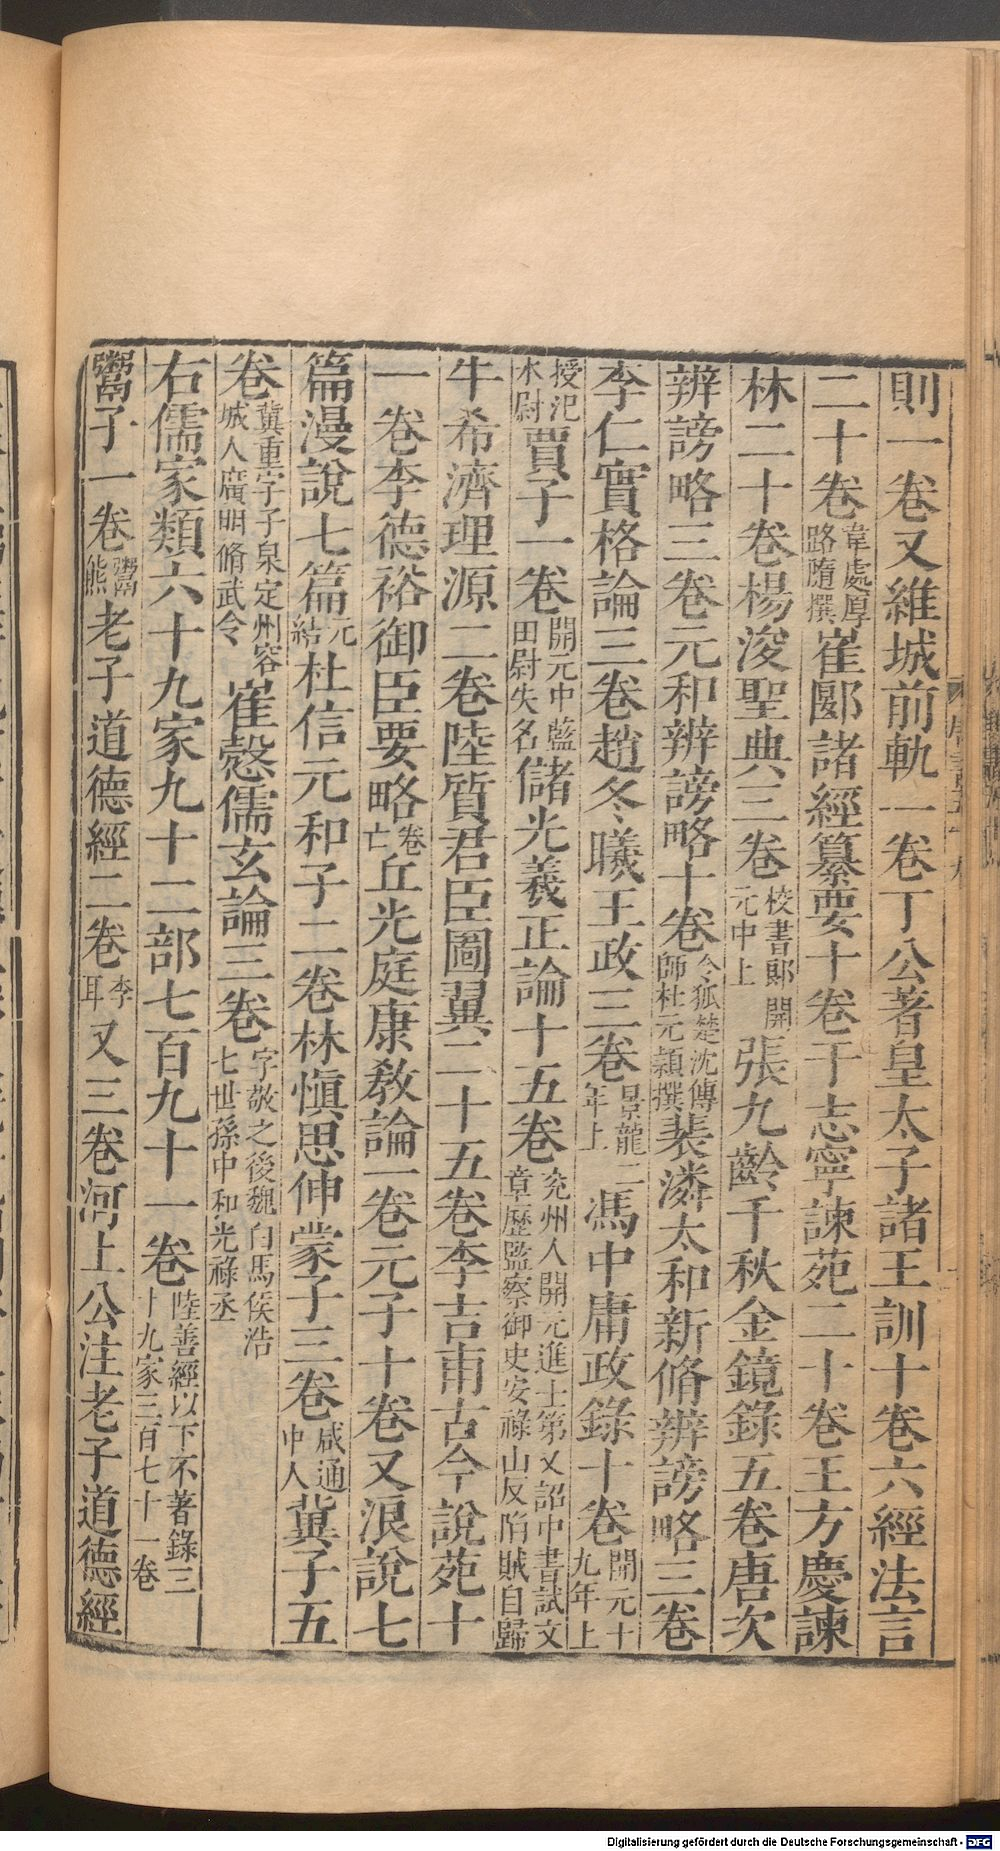 則一卷又維城前軌一卷丁公著皇太子諸王訓十卷六經法言
二十卷韋處厚路隋撰崔郾諸經纂要十卷于志寧諫苑二十卷王方慶諫
林二十卷楊浚聖典三卷校書郎開元中上張九齡千秋金鏡錄五卷唐次
辨謗略三卷元和辨謗略十卷令狐楚沈傳師杜元穎撰裴潾太和新脩辨謗略三卷
李仁實格論三卷趙冬曦王政三卷景龍二年上馮中庸政錄十卷開元十九年上
授汜水尉賈子一卷開元中藍田尉失名儲光羲正論十五卷兗州人開元進士第又詔中書試文章歷監察御史安祿山反陷賊自歸
牛希濟理源二卷陸質君臣圖翼二十五卷李吉甫古今說苑十
一卷李德裕御臣要略卷亡丘光庭康敎論一卷元子十卷又浪說七
篇漫說七篇元結杜信元和子二卷林愼思伸蒙子三卷咸通中人冀子五
卷冀重字子泉定州容城人廣明脩武令崔慤儒玄論三卷字敬之後魏白馬侯浩七世孫中和光祿丞
右儒家類六十九家九十二部七百九十一卷陸善經以下不著錄三十九家三百七十一卷
鬻子一卷鬻熊老子道德經二卷李耳又三卷河上公注老子道德經
Digitalisierung gefördert durch die Deutsche Forschungsgemeinschaft - DFG